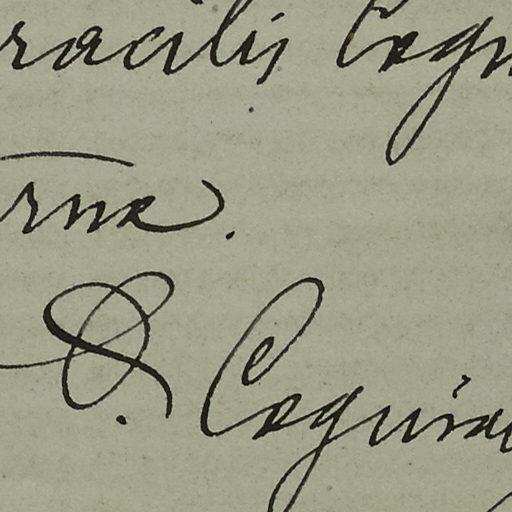 racilis Cogn
A. Cogniau